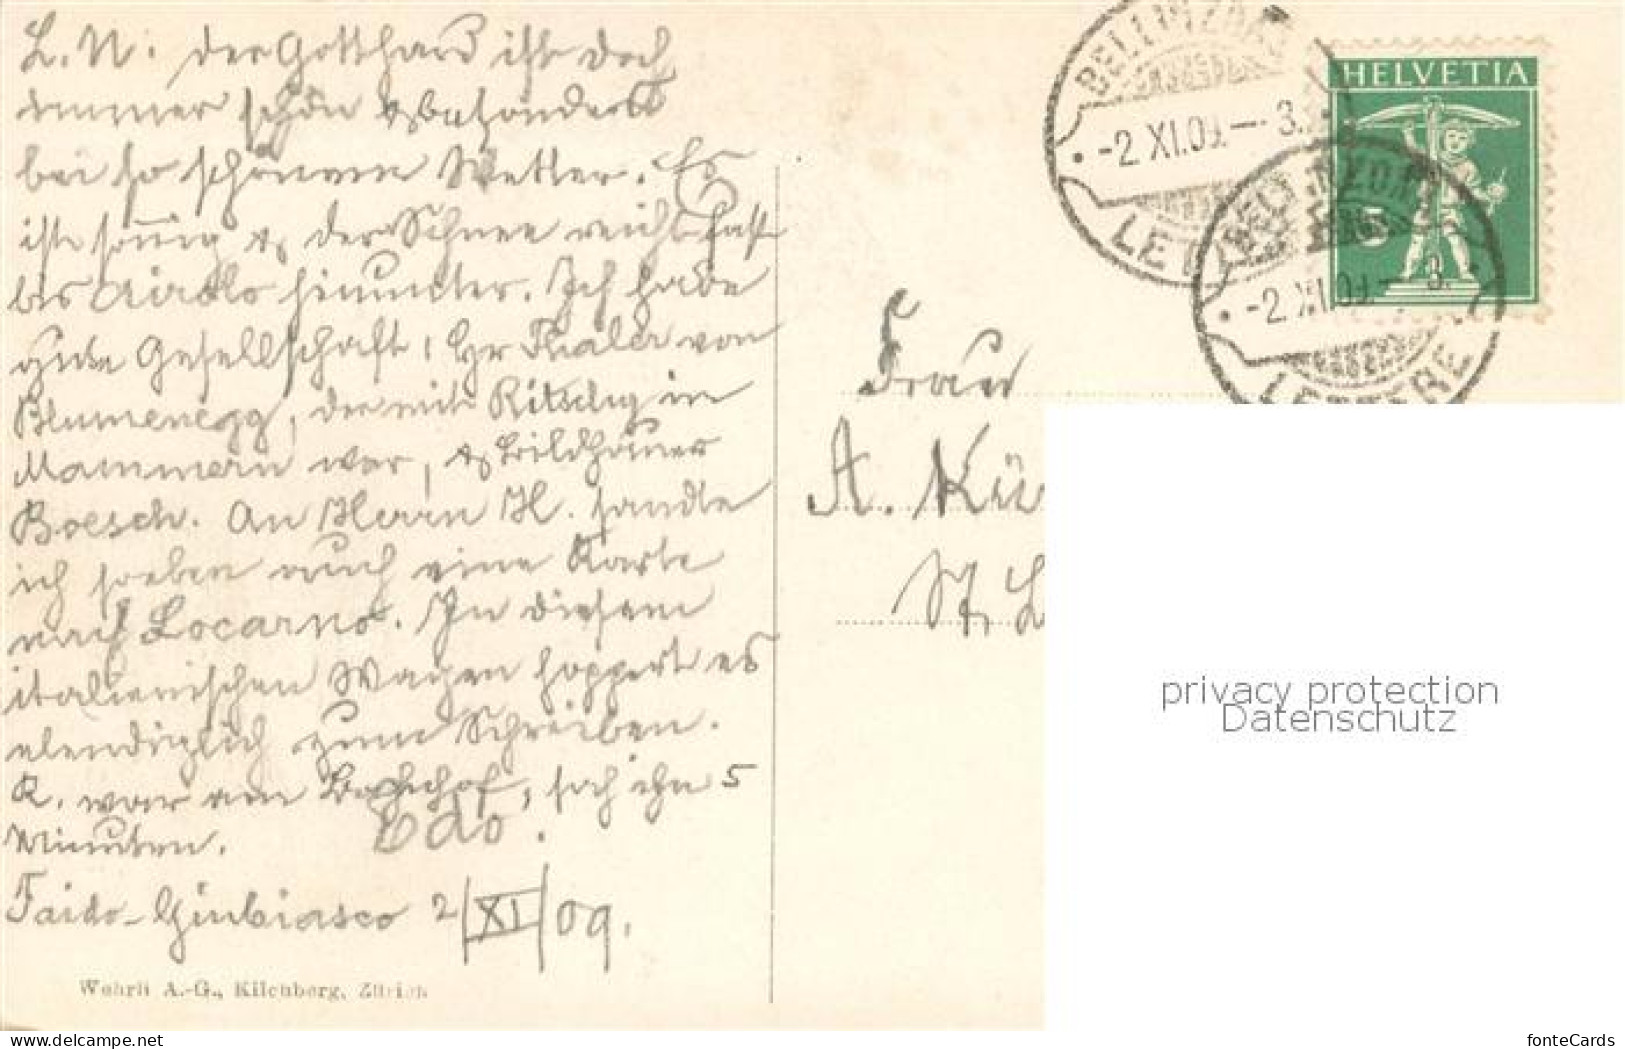 L. N. der Gotthard ist doch
immer schön & besonders
bei so schönem Wetter. Es
ist sonnig & der Schnee reicht fast
bis Airolo hinunter. Ich habe
gute Gesellschaft, Hr Thaler von
Blumenegg, der mit Ritschy in
Mammern war, & Bildhauer
Boesch. An Herrn H. sandte
ich soeben auch eine Karte
nach Locarno. In diesem
italienischen Wagen hoppert es
elendiglich zum Schreiben.
R. war am Bahnhof, sah ihn 5
Minuten. Edo.
Faido-Giubiasco 2/XI/09.
Wehrli A.-G., Kilchberg, Zürich
BELLINZONA
-2.XI.09.-3.
LETTERE
BELLINZONA
-2.XI.09.-3.
LETTERE
HELVETIA
5
Frau
A. Kü
St. L
privacy protection
Datenschutz
www.delcampe.net
fonteCards